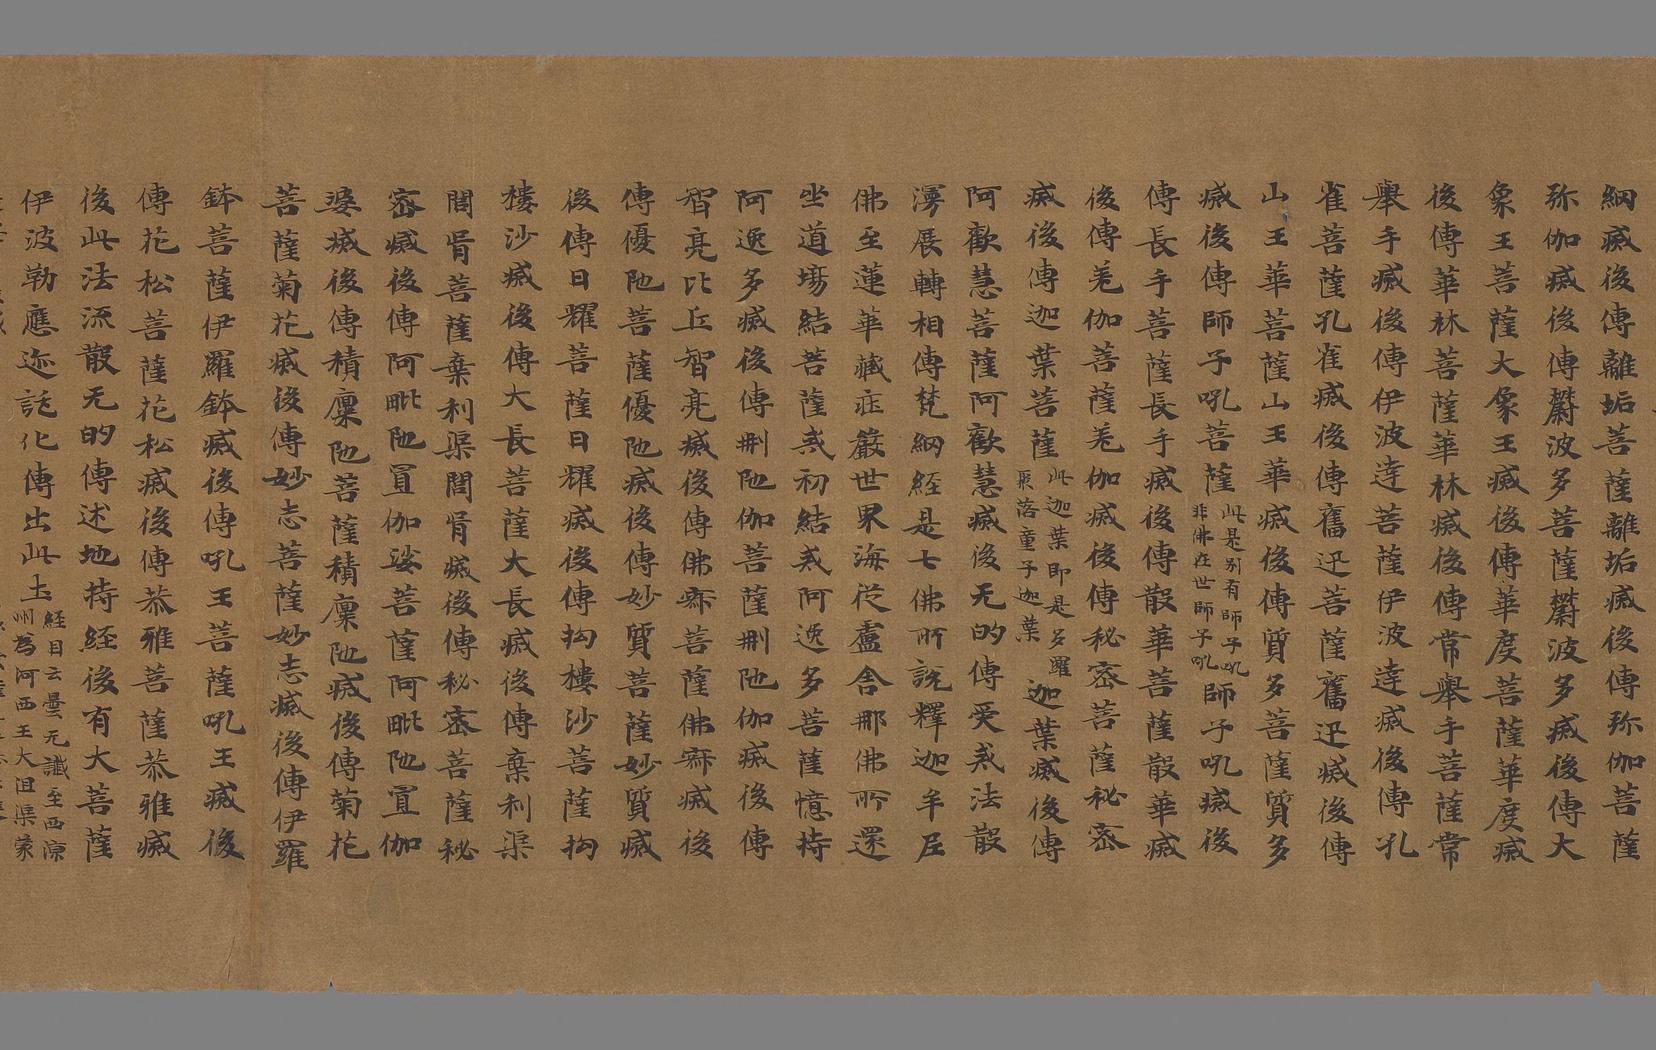 網滅後傳離垢菩薩離垢滅後傳弥伽菩薩
弥伽滅後傳欝波多菩薩欝波多滅後傳大
象王菩薩大象王滅後傳華度菩薩華度滅
後傳華林菩薩華林滅後傳常舉手菩薩常
舉手滅後傳伊波達菩薩伊波達滅後傳孔
雀菩薩孔雀滅後傳奮迅菩薩奮迅滅後傳
山王華菩薩山王華滅後傳質多菩薩質多
滅後傳師子吼菩薩此是別有師子吼非佛在世師子吼師子吼滅後
傳長手菩薩長手滅後傳散華菩薩散華滅
後傳羌伽菩薩羌伽滅後傳秘密菩薩秘密
滅後傳迦葉菩薩此迦葉即是多羅聚落童子迦葉迦葉滅後傳
阿歡慧菩薩阿歡慧滅後无的傳受戒法散
漫展轉相傳梵網經是七佛所說釋迦牟尼
佛至蓮華藏莊嚴世界海從盧舍那佛所還
坐道場結菩薩戒初結戒阿逸多菩薩憶持
阿逸多滅後傳刪陁伽菩薩刪陁伽滅後傳
智亮比丘智亮滅後傳佛𡪢菩薩佛𡪢滅後
傳優陁菩薩優陁滅後傳妙質菩薩妙質滅
後傳日耀菩薩日耀滅後傳拘樓沙菩薩拘
樓沙滅後傳大長菩薩大長滅後傳棄利渠
閻胥菩薩棄利渠閻胥滅後傳秘密菩薩秘
密滅後傳阿毗陁宣伽娑菩薩阿毗陁宣伽
婆滅後傳積廩陁菩薩積廩陁滅後傳菊花
菩薩菊花滅後傳妙志菩薩妙志滅後傳伊羅
鉢菩薩伊羅鉢滅後傳吼王菩薩吼王滅後
傳花松菩薩花松滅後傳恭雅菩薩恭雅滅
後此法流散无的傳述地持經後有大菩薩
伊波勒應迹託化傳出此土經目云曇无讖至西涼州為河西王大沮渠蒙